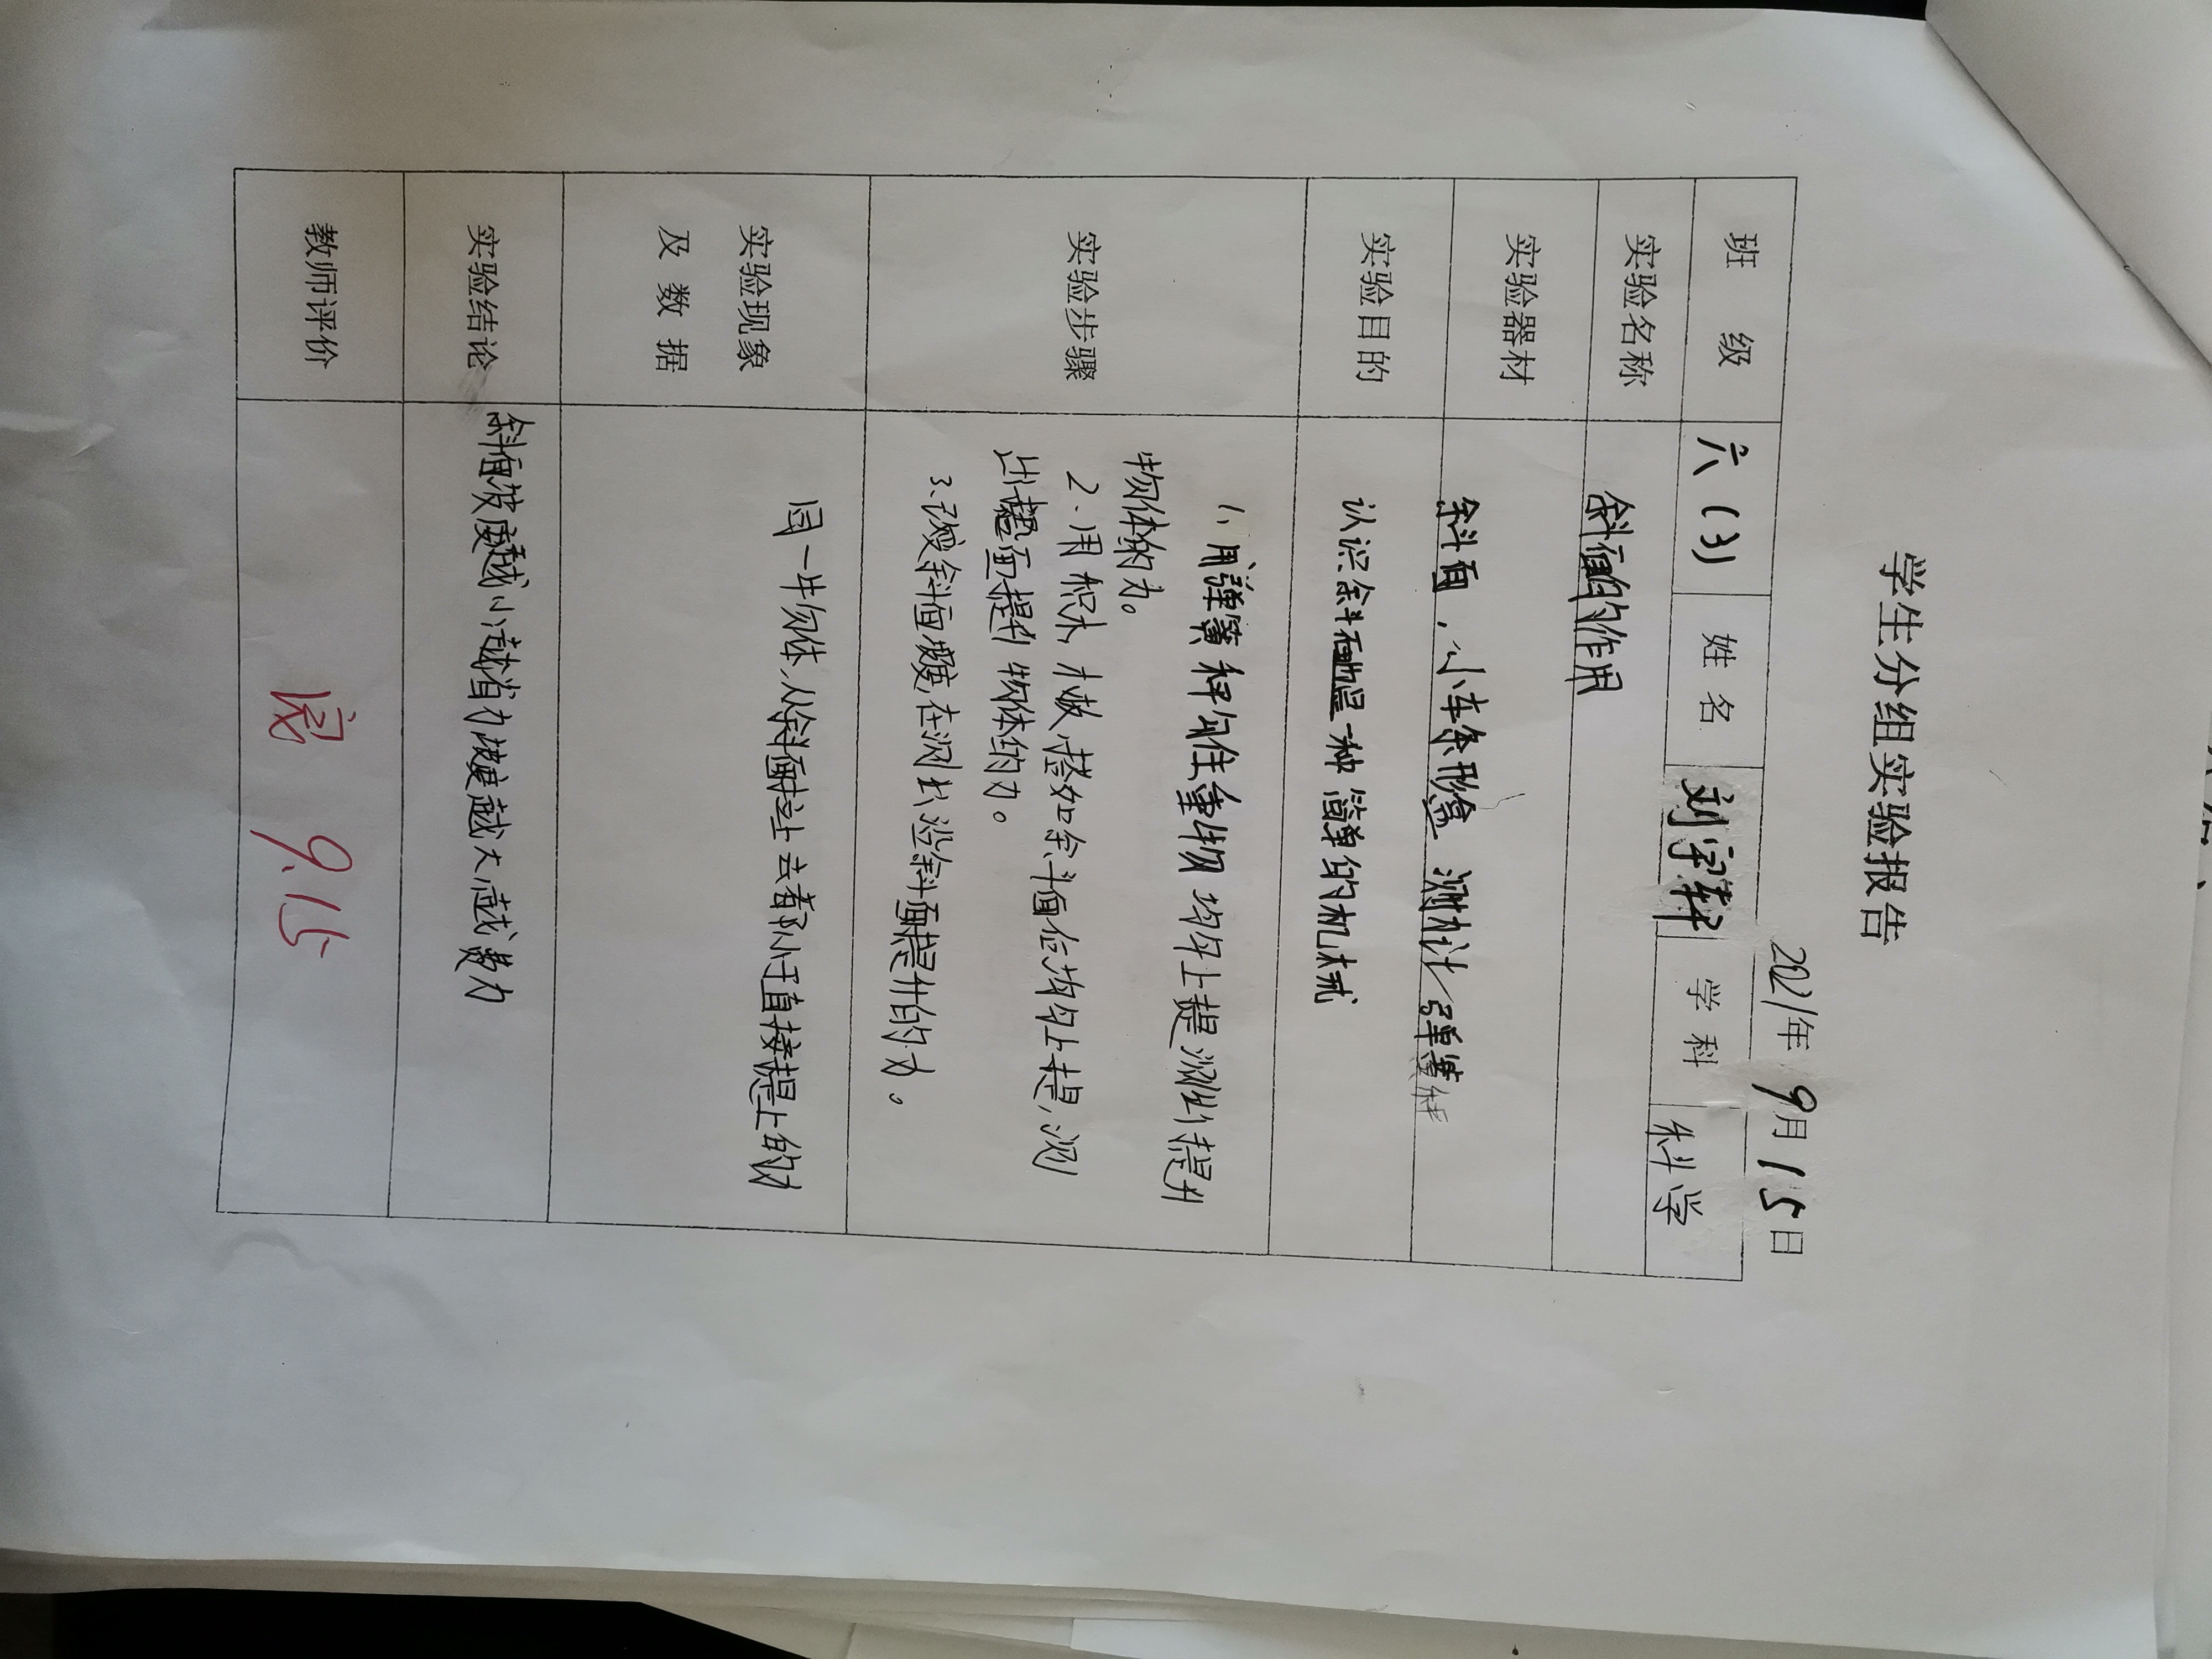 学生分组实验报告
2021年 9月 15日
班 级 六(3) 姓 名 刘宇轩 学 科 科学
实验名称 斜面的作用
实验器材 斜面,小车条形盒 测力计/弹簧秤
实验目的 认识斜面也是一种简单的机械
实验步骤
1、用弹簧秤勾住重物 均匀上提测出提升
物体的力。
2、用积木、木板、搭如斜面位均匀上提,测
出 面提升物体的力。
3、改变斜面坡度,在测出沿斜面提升的力。
实验现象
及 数 据
同一牛物体,从斜面拉上去都小于直接提上的力
实验结论 斜面坡度越小越省力坡度越大越费力
教师评价 良 9.15